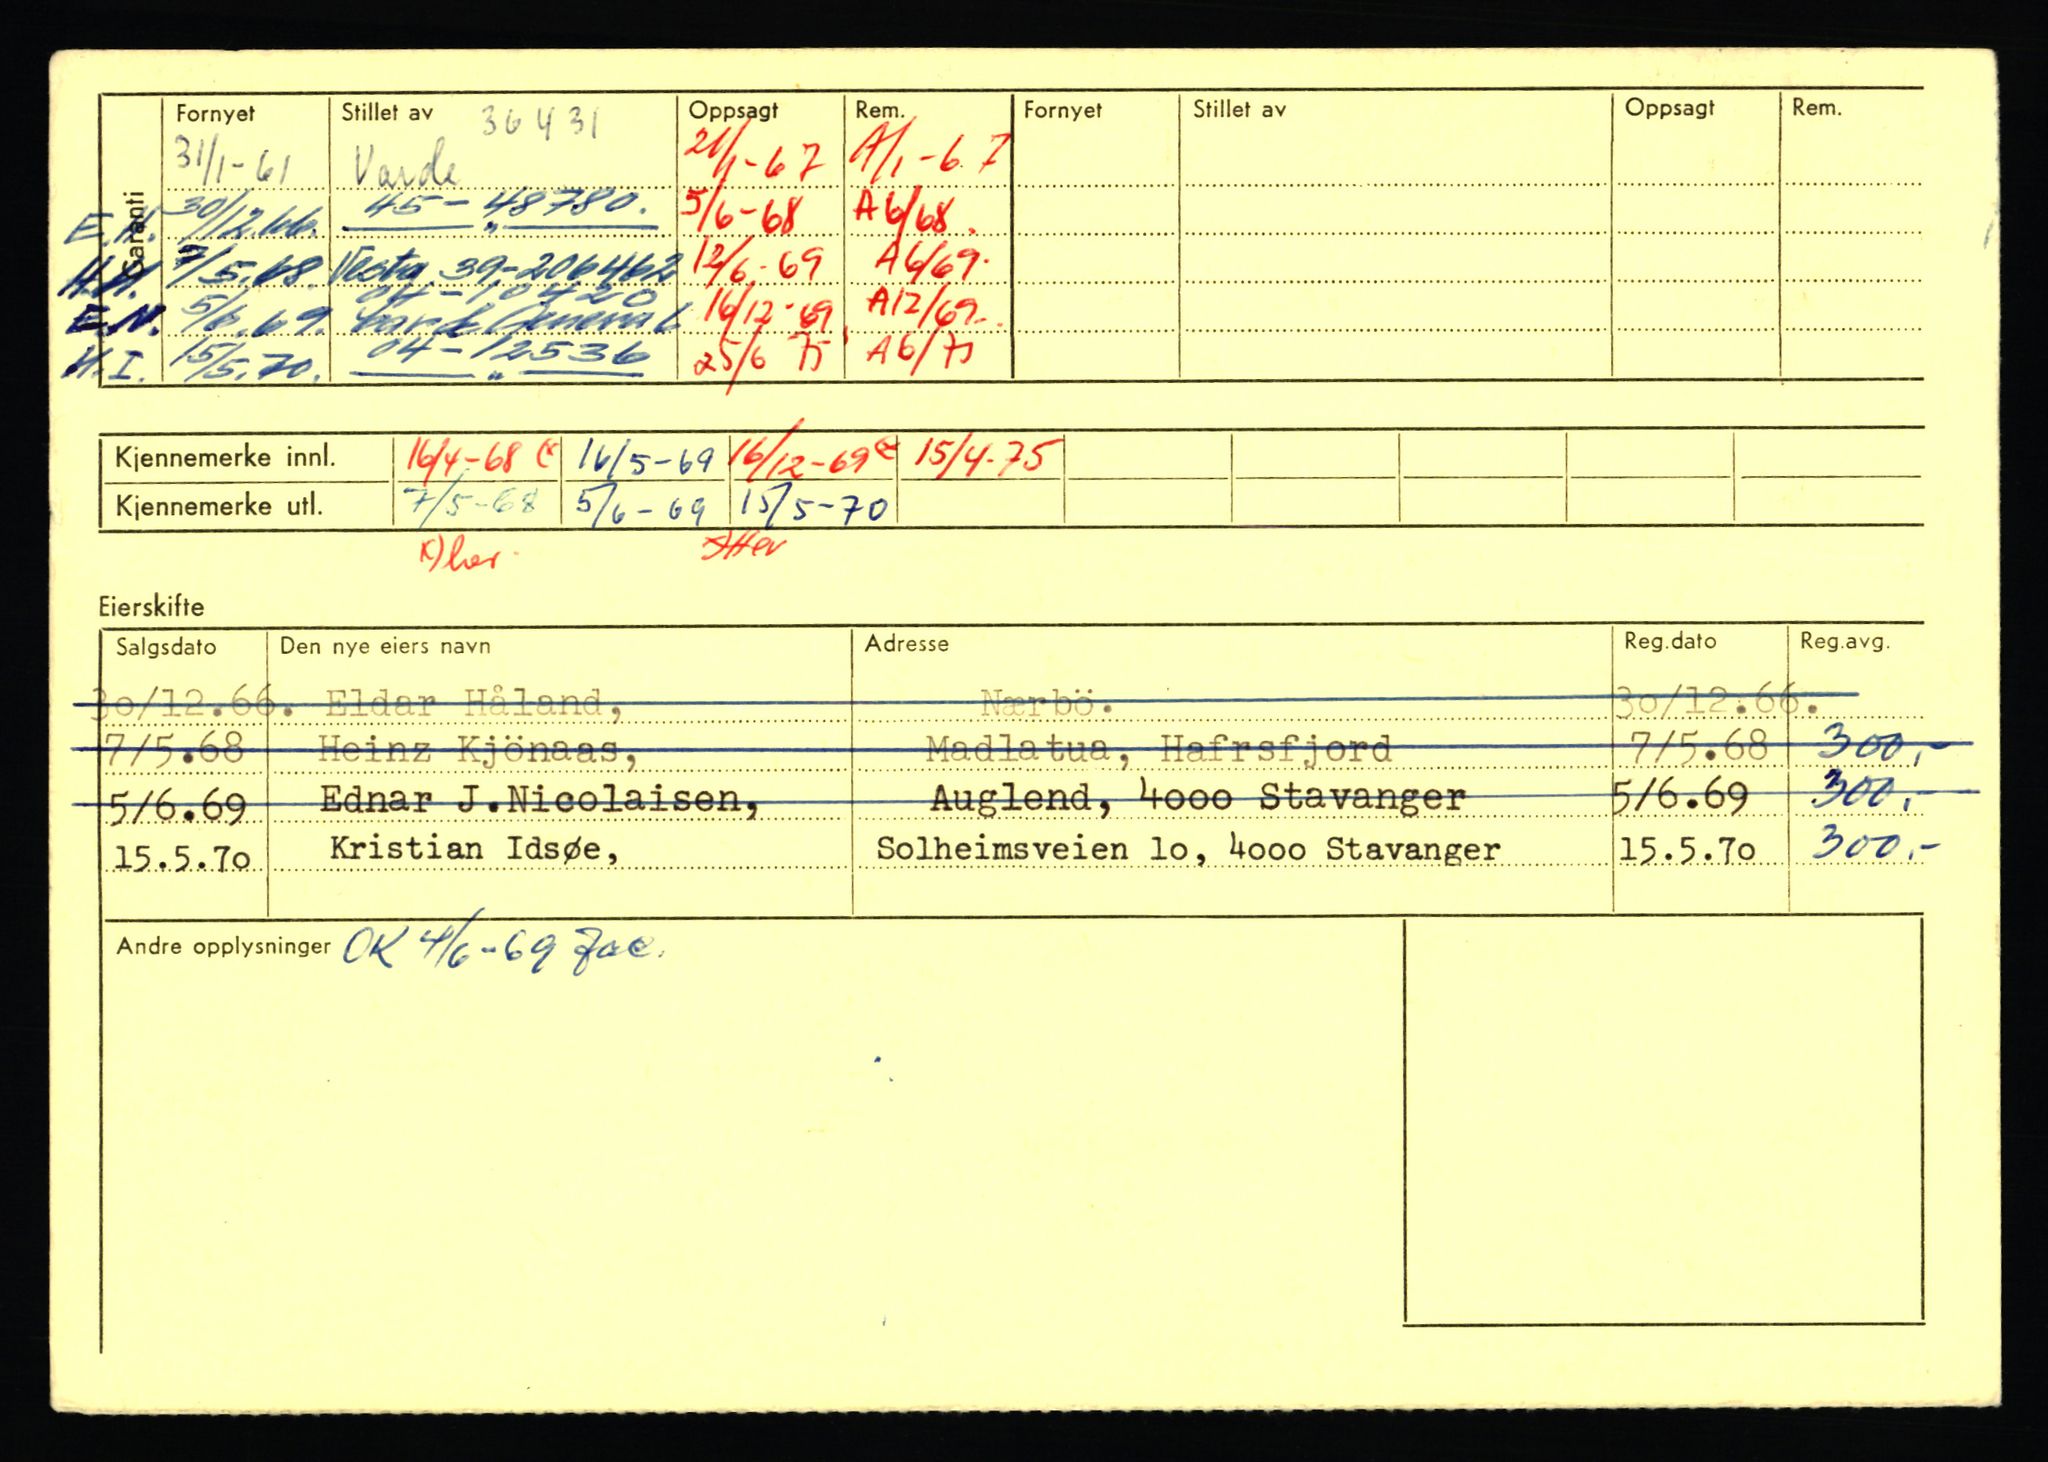 Garanti
Fornyet Stillet av 36431 Oppsagt Rem. Fornyet Stillet av Oppsagt Rem.
31/1-61 Varde 21/1-67 A/1-67
E.H. 30/12.66. 45-48780. 5/6-68 A6/68.
H.K. 7/5.68. Vesta 39-206462 12/6-69 A6/69.
E.N. 5/6.69. 04-10420 General 16/12-69 A12/69.
H.I. 15/5.70. 04-12536 25/6 75 A6/75
Kjennemerke innl. 16/4-68 (x 16/5-69 16/12-69 x 15/4-75
Kjennemerke utl. 7/5-68 5/6-69 15/5-70
x) her
Eierskifte
Salgsdato Den nye eiers navn Adresse Reg.dato Reg.avg.
30/12.66. Eldar Håland, Nærbö. 30/12.66.
7/5.68 Heinz Kjönaas, Madlatua, Hafrsfjord 7/5.68 300,-
5/6.69 Ednar J.Nicolaisen, Auglend, 4000 Stavanger 5/6.69 300,-
15.5.70 Kristian Idsøe, Solheimsveien 10, 4000 Stavanger 15.5.70 300,-
Andre opplysninger OK 4/6-69